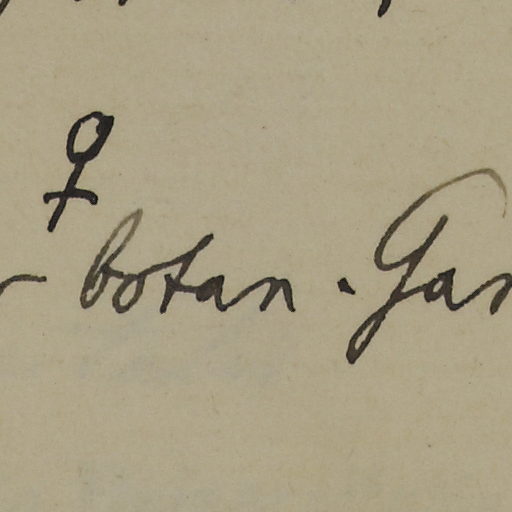 ♀
botan. Gar